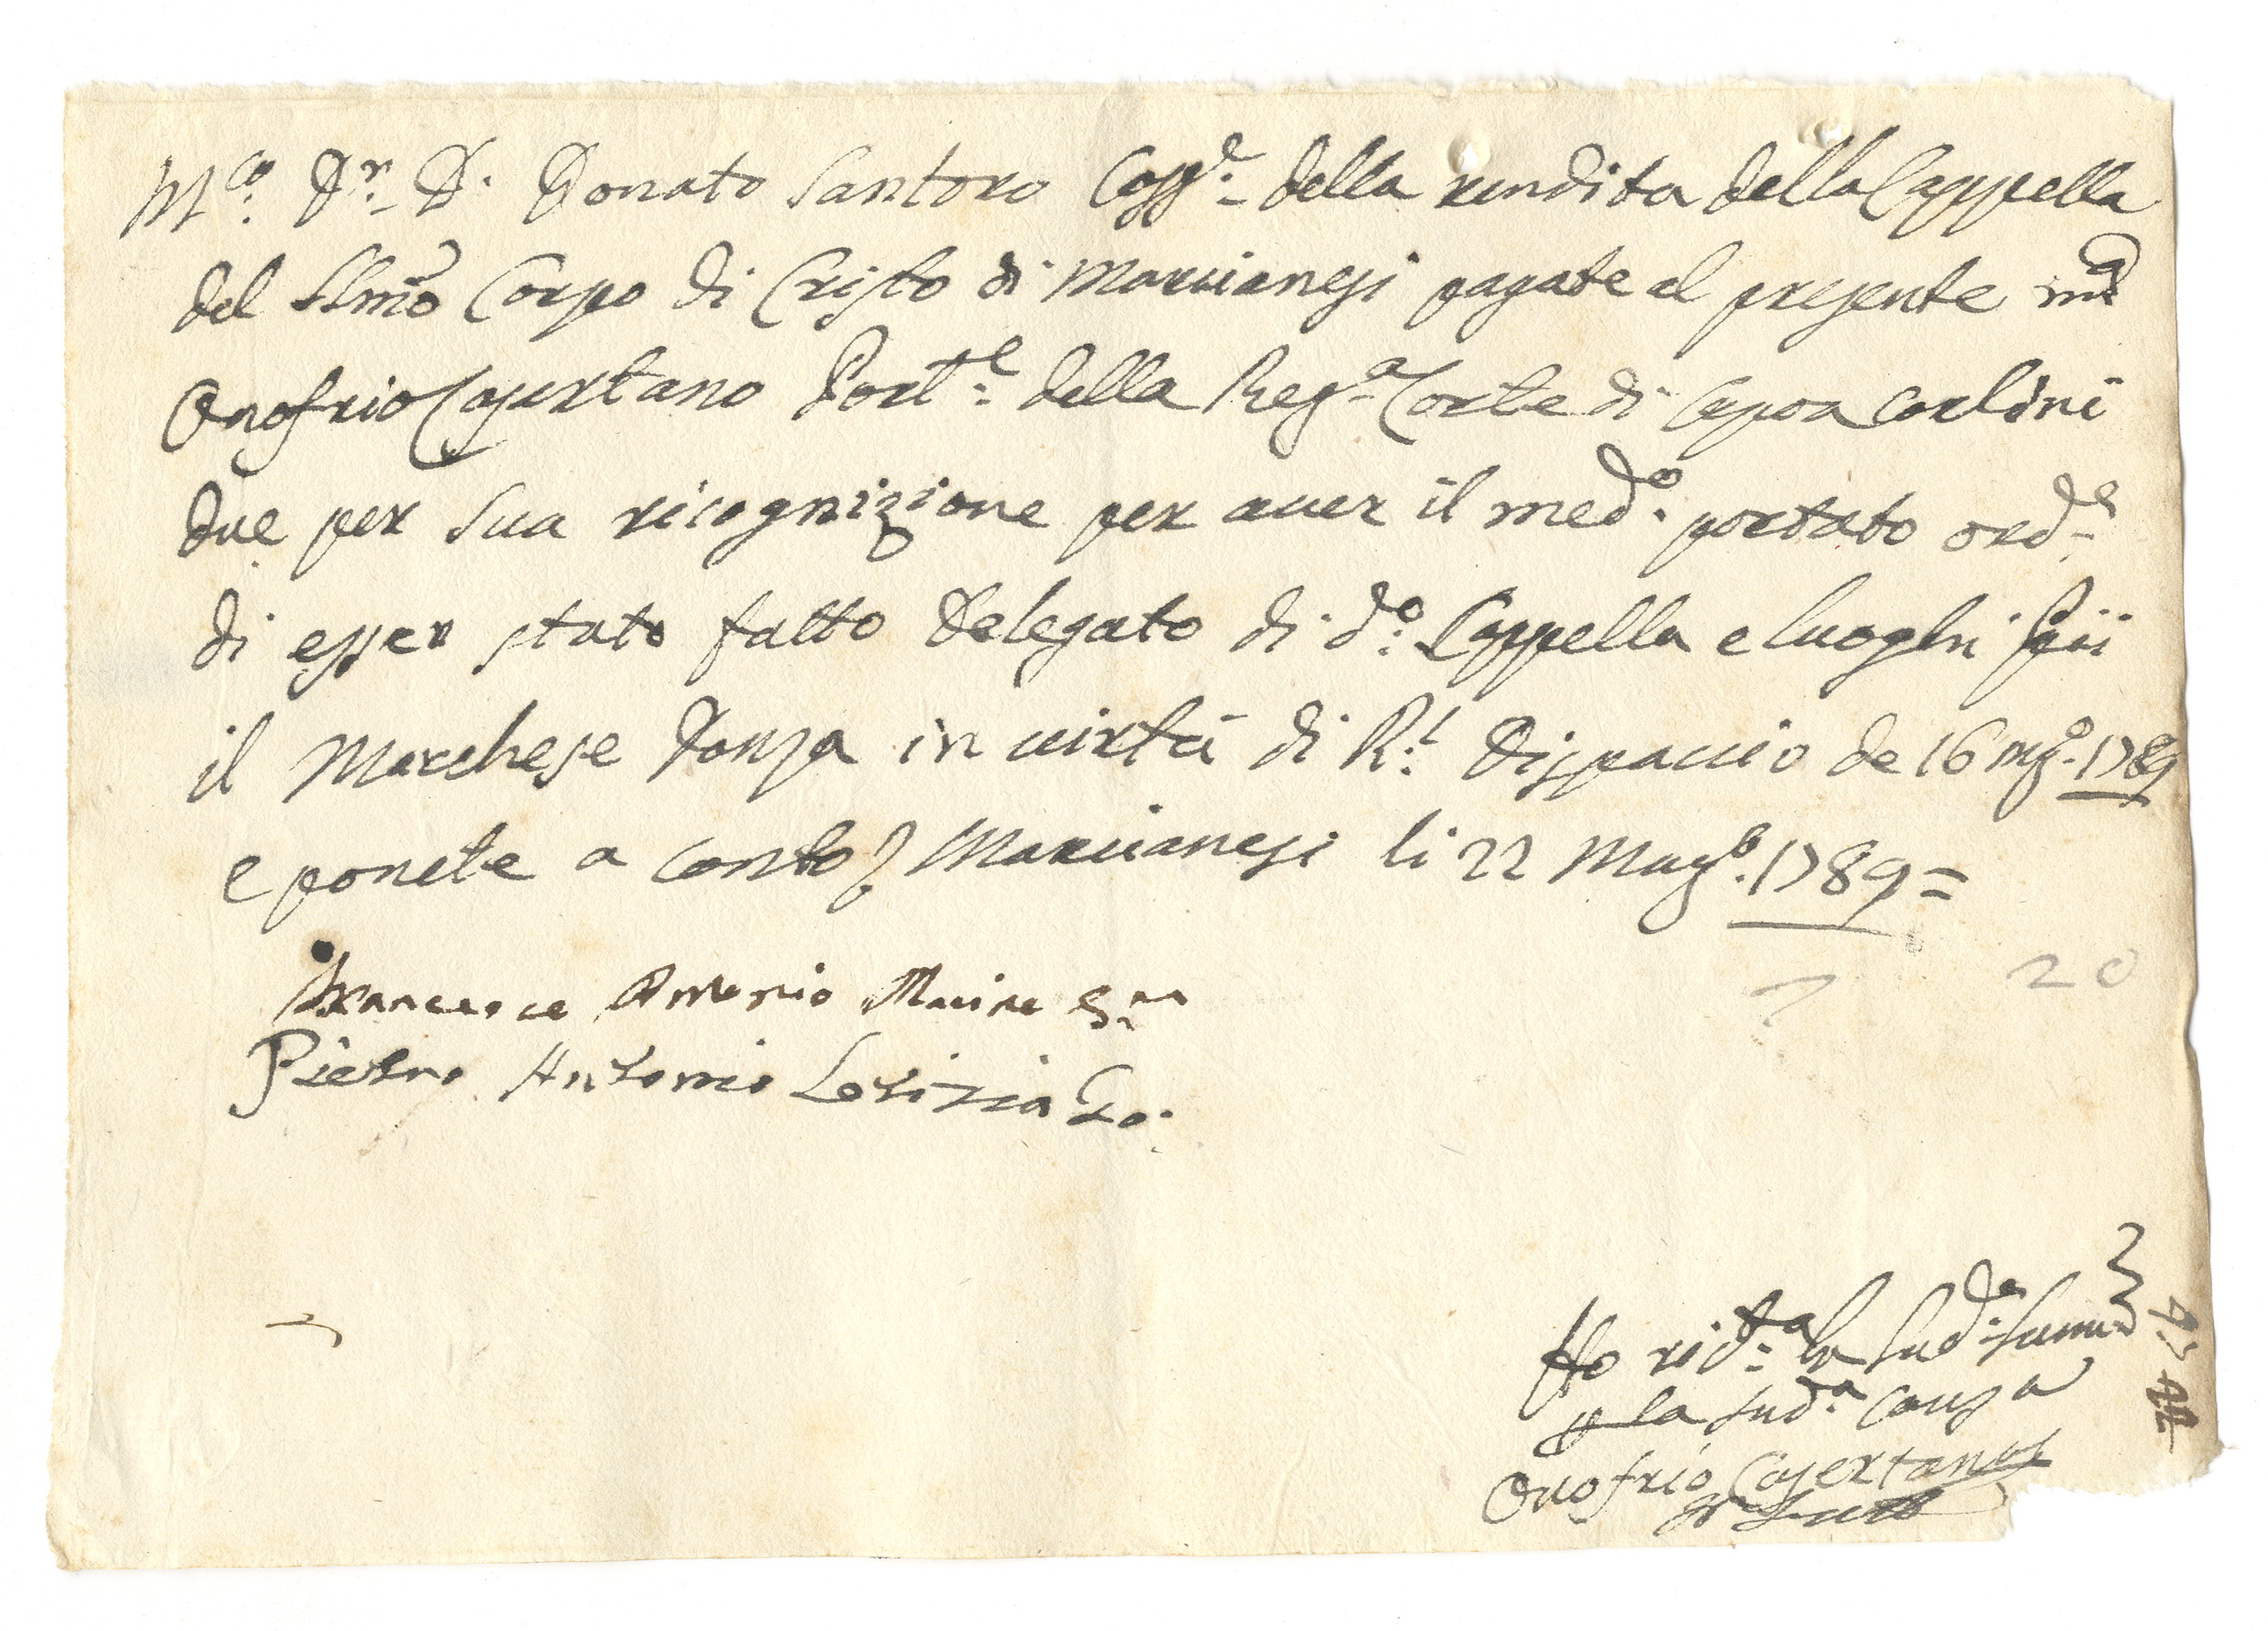 M.co D.r D. Donato Santoro Cass.e della rendita della Cappella
del SSmo Corpo di Cristo di Marcianesi pagate al presente
Onofrio Casertano Port.e della Reg.a Corte di Capoa carlini
due per sua ricognizione per aver il med.o portato ord.e
di esser stato fatto Delegato di d.o Cappella e luoghi Pii
il Marchese in virtù di R.l Dispaccio de 16 mag.o 1789
e ponete a conto Marcianesi li 22 Mag.o 1789 =
20
Francesco Antonio
Pietro Antonio Letizia
Ho la sud.a
p la sud.a causa
Onofrio Casertano